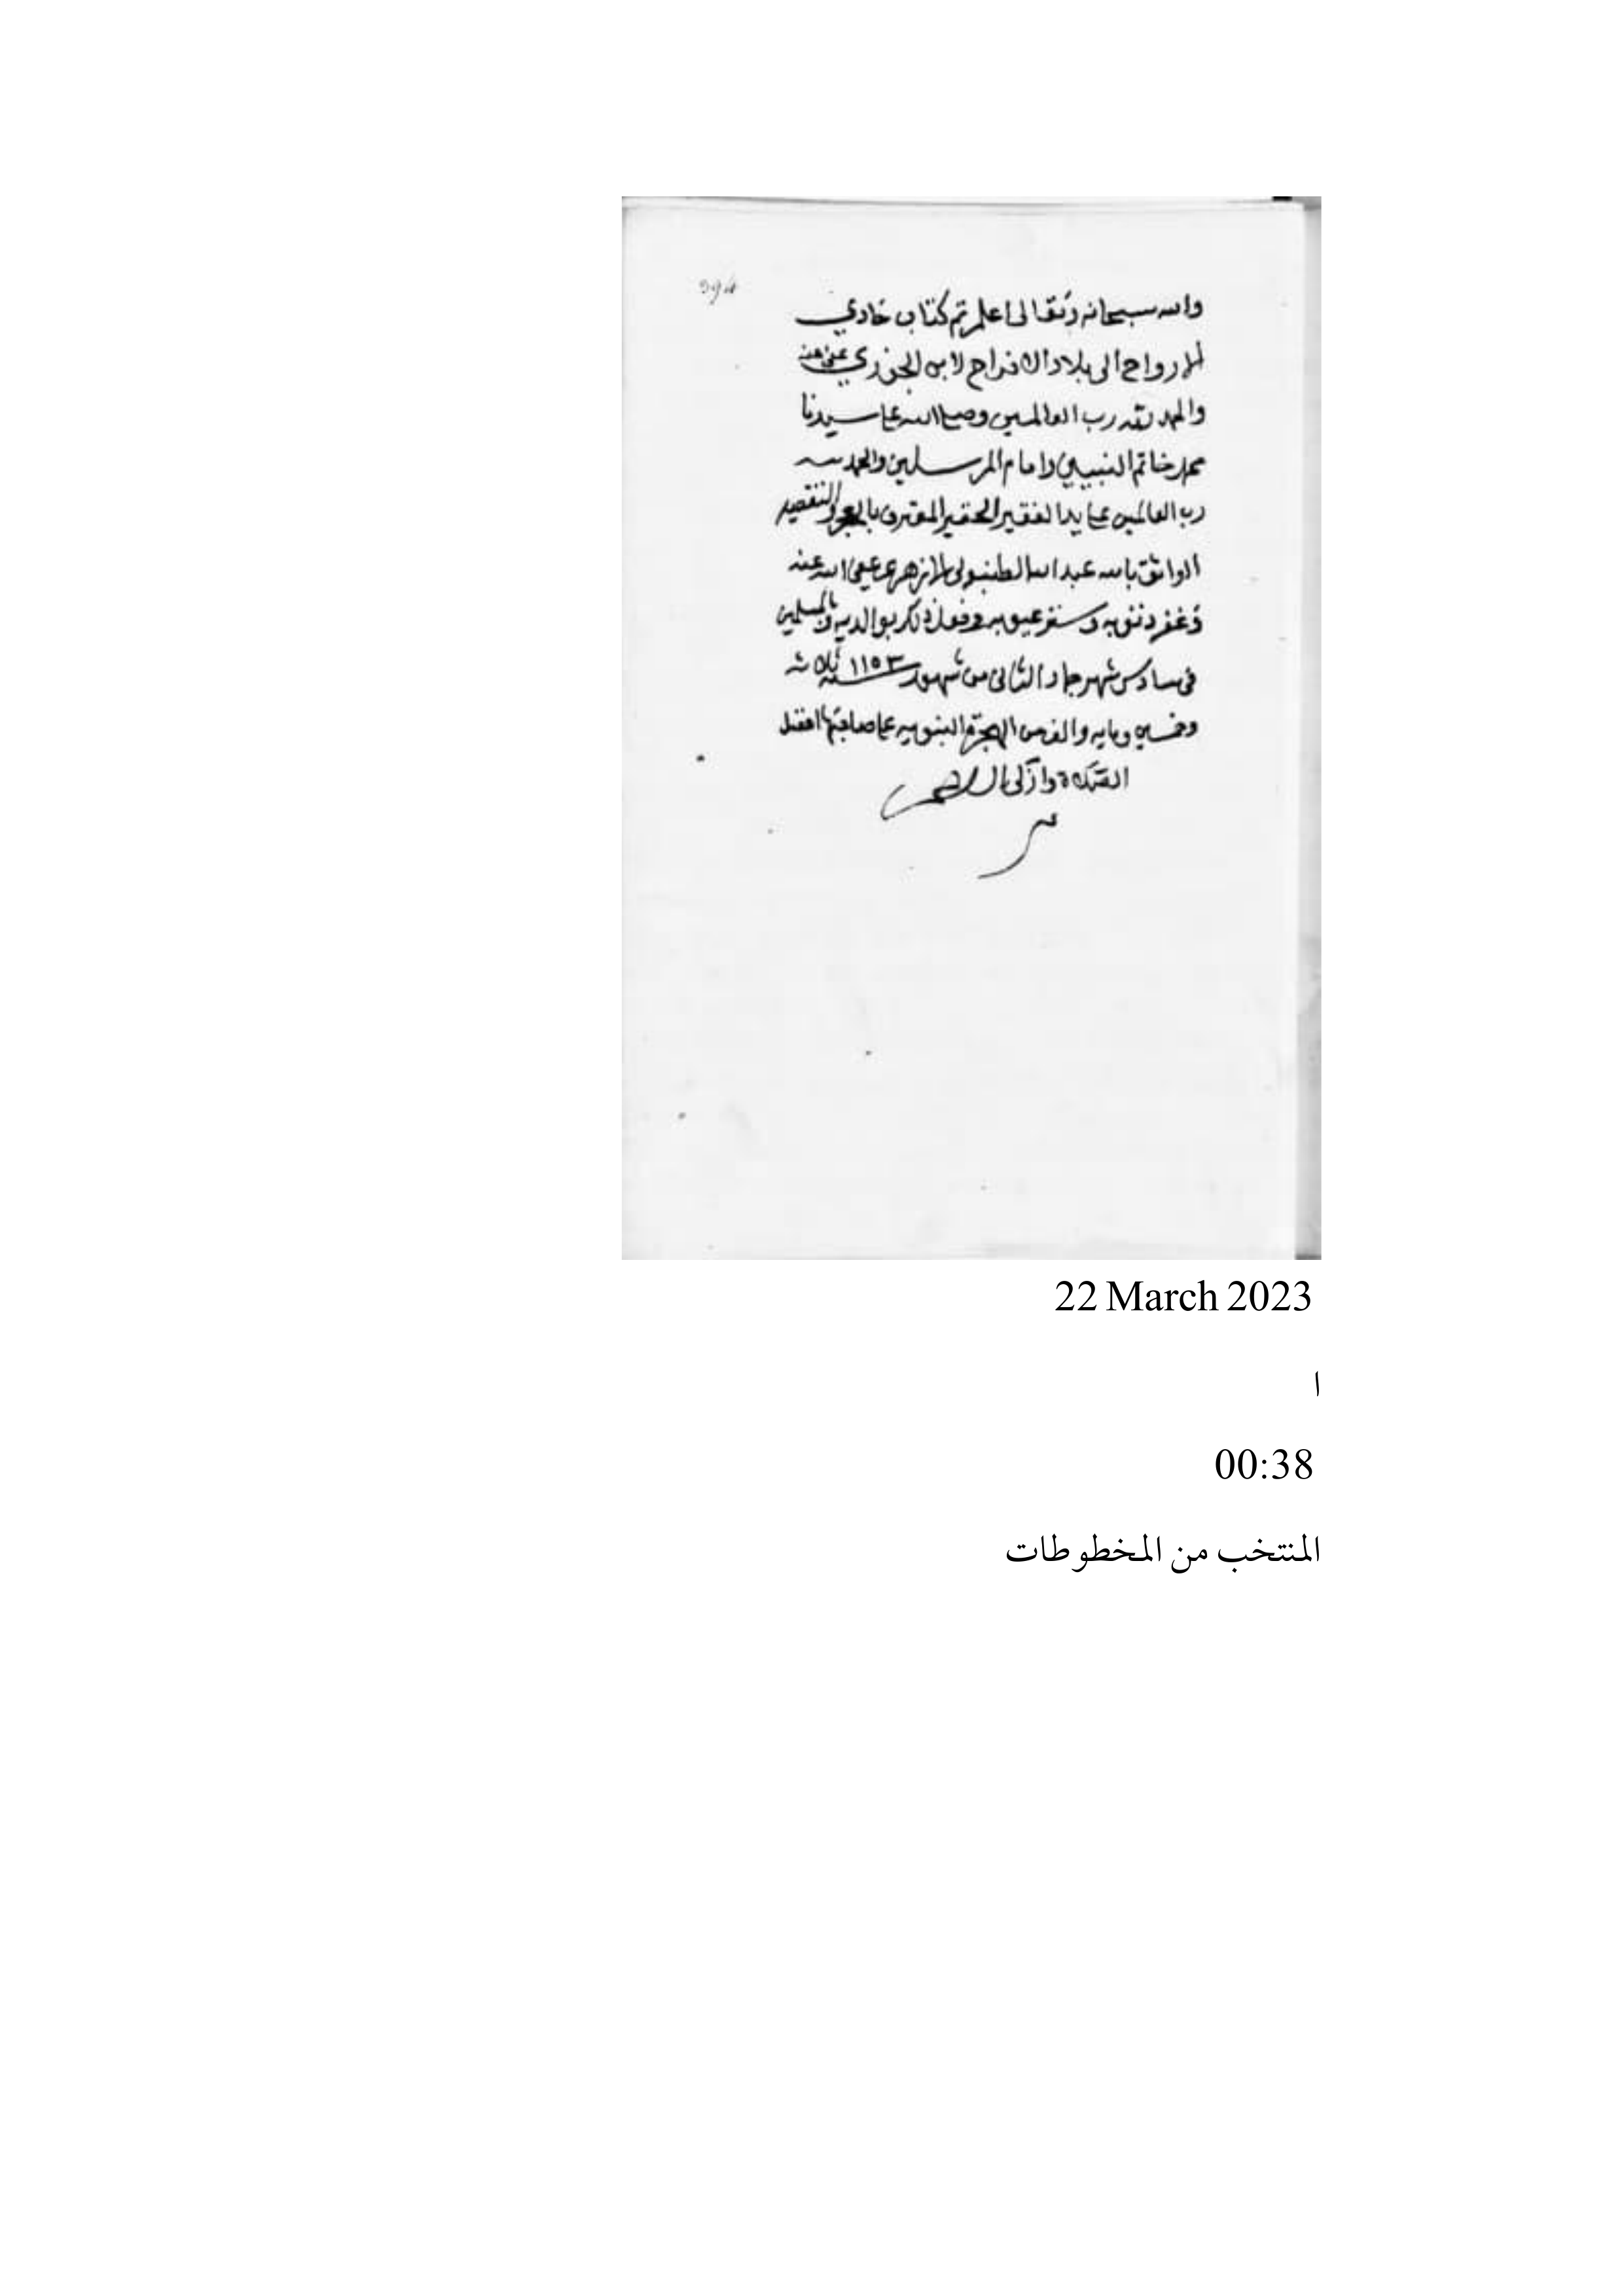 394
والله سبحانه وتعالى اعلم تم كتاب حادي
الارواح الى بلاد الافراح لابن الجوزي عفى عنه
والحمد لله رب العالمين وصلى الله على سيدنا
محمد خاتم النبيين وامام المرسلين والحمد لله
رب العالمين على يد الفقير الحقير المعترف بالعجز والتقصير
الواثق بالله عبد الله الطنبولي الازهري عفى الله عنه
وغفر ذنوبه وستر عيوبه وفعل ذلك بوالديه والمسلمين
في سادس شهر جماد الثاني من شهور سنة ١١٥٣ ثلاثه
وخمسين ومايه والف من الهجرة النبويه على صاحبها افضل
الصلاة وازكى السلام
22 March 2023
ا
00:38
المنتخب من المخطوطات